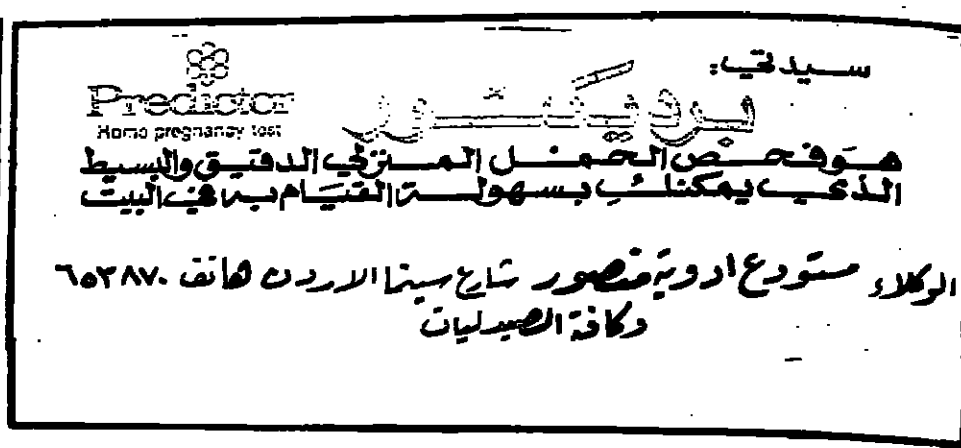 سيدتي:
Predictor
Home pregnancy test
برديكتور
هو فحص الحمل المنزلي الدقيق والبسيط
الذي يمكنك بسهولة القيام به في البيت
الوكلاء مستودع ادوية منصور شارع سينما الاردن هاتف ٦٥٣٨٧٠
وكافة الصيدليات